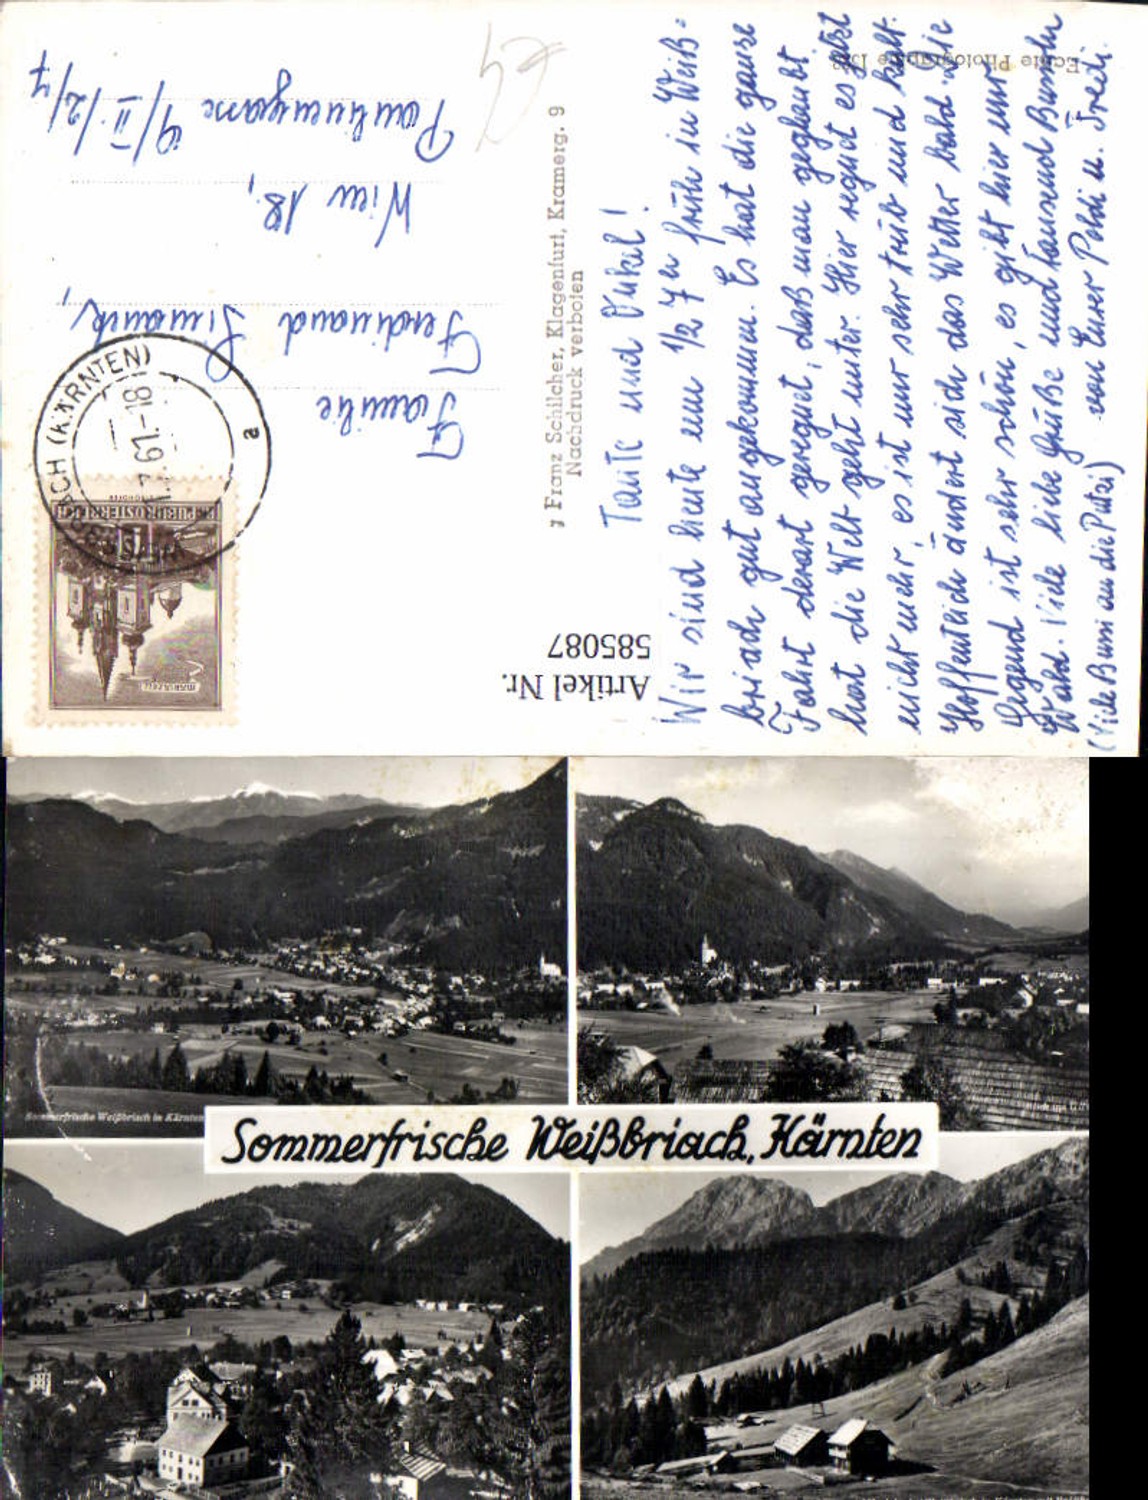 Tante und Onkel!
Wir sind heute um 1/2 7h früh in Weiß-
briach gut angekommen. Es hat die ganze
Fahrt derart geregnet, daß man geglaubt
hat die Welt geht unter. Hier regnet es jetzt
nicht mehr, es ist nur sehr trüb und kalt.
Hoffentlich ändert sich das Wetter bald. Die
Gegend ist sehr schön, es gibt hier nur
Wald. Viele liebe Grüße und tausend Bussln
von Eurer Poldi u. Fredi.
(Viele Bussi an die Putzi)
Echte Photographie
Franz Schilcher, Klagenfurt, Kramerg. 9
Nachdruck verboten
Familie
Ferdinand
Wien 18.,
Paulinengasse 9/II/2/7
(KÄRNTEN)
61.-18
a
REPUBLIK ÖSTERREICH
MARIAZELL
Artikel Nr.
585087
Sommerfrische Weißbriach in Kärnten
Sommerfrische Weißbriach, Kärnten